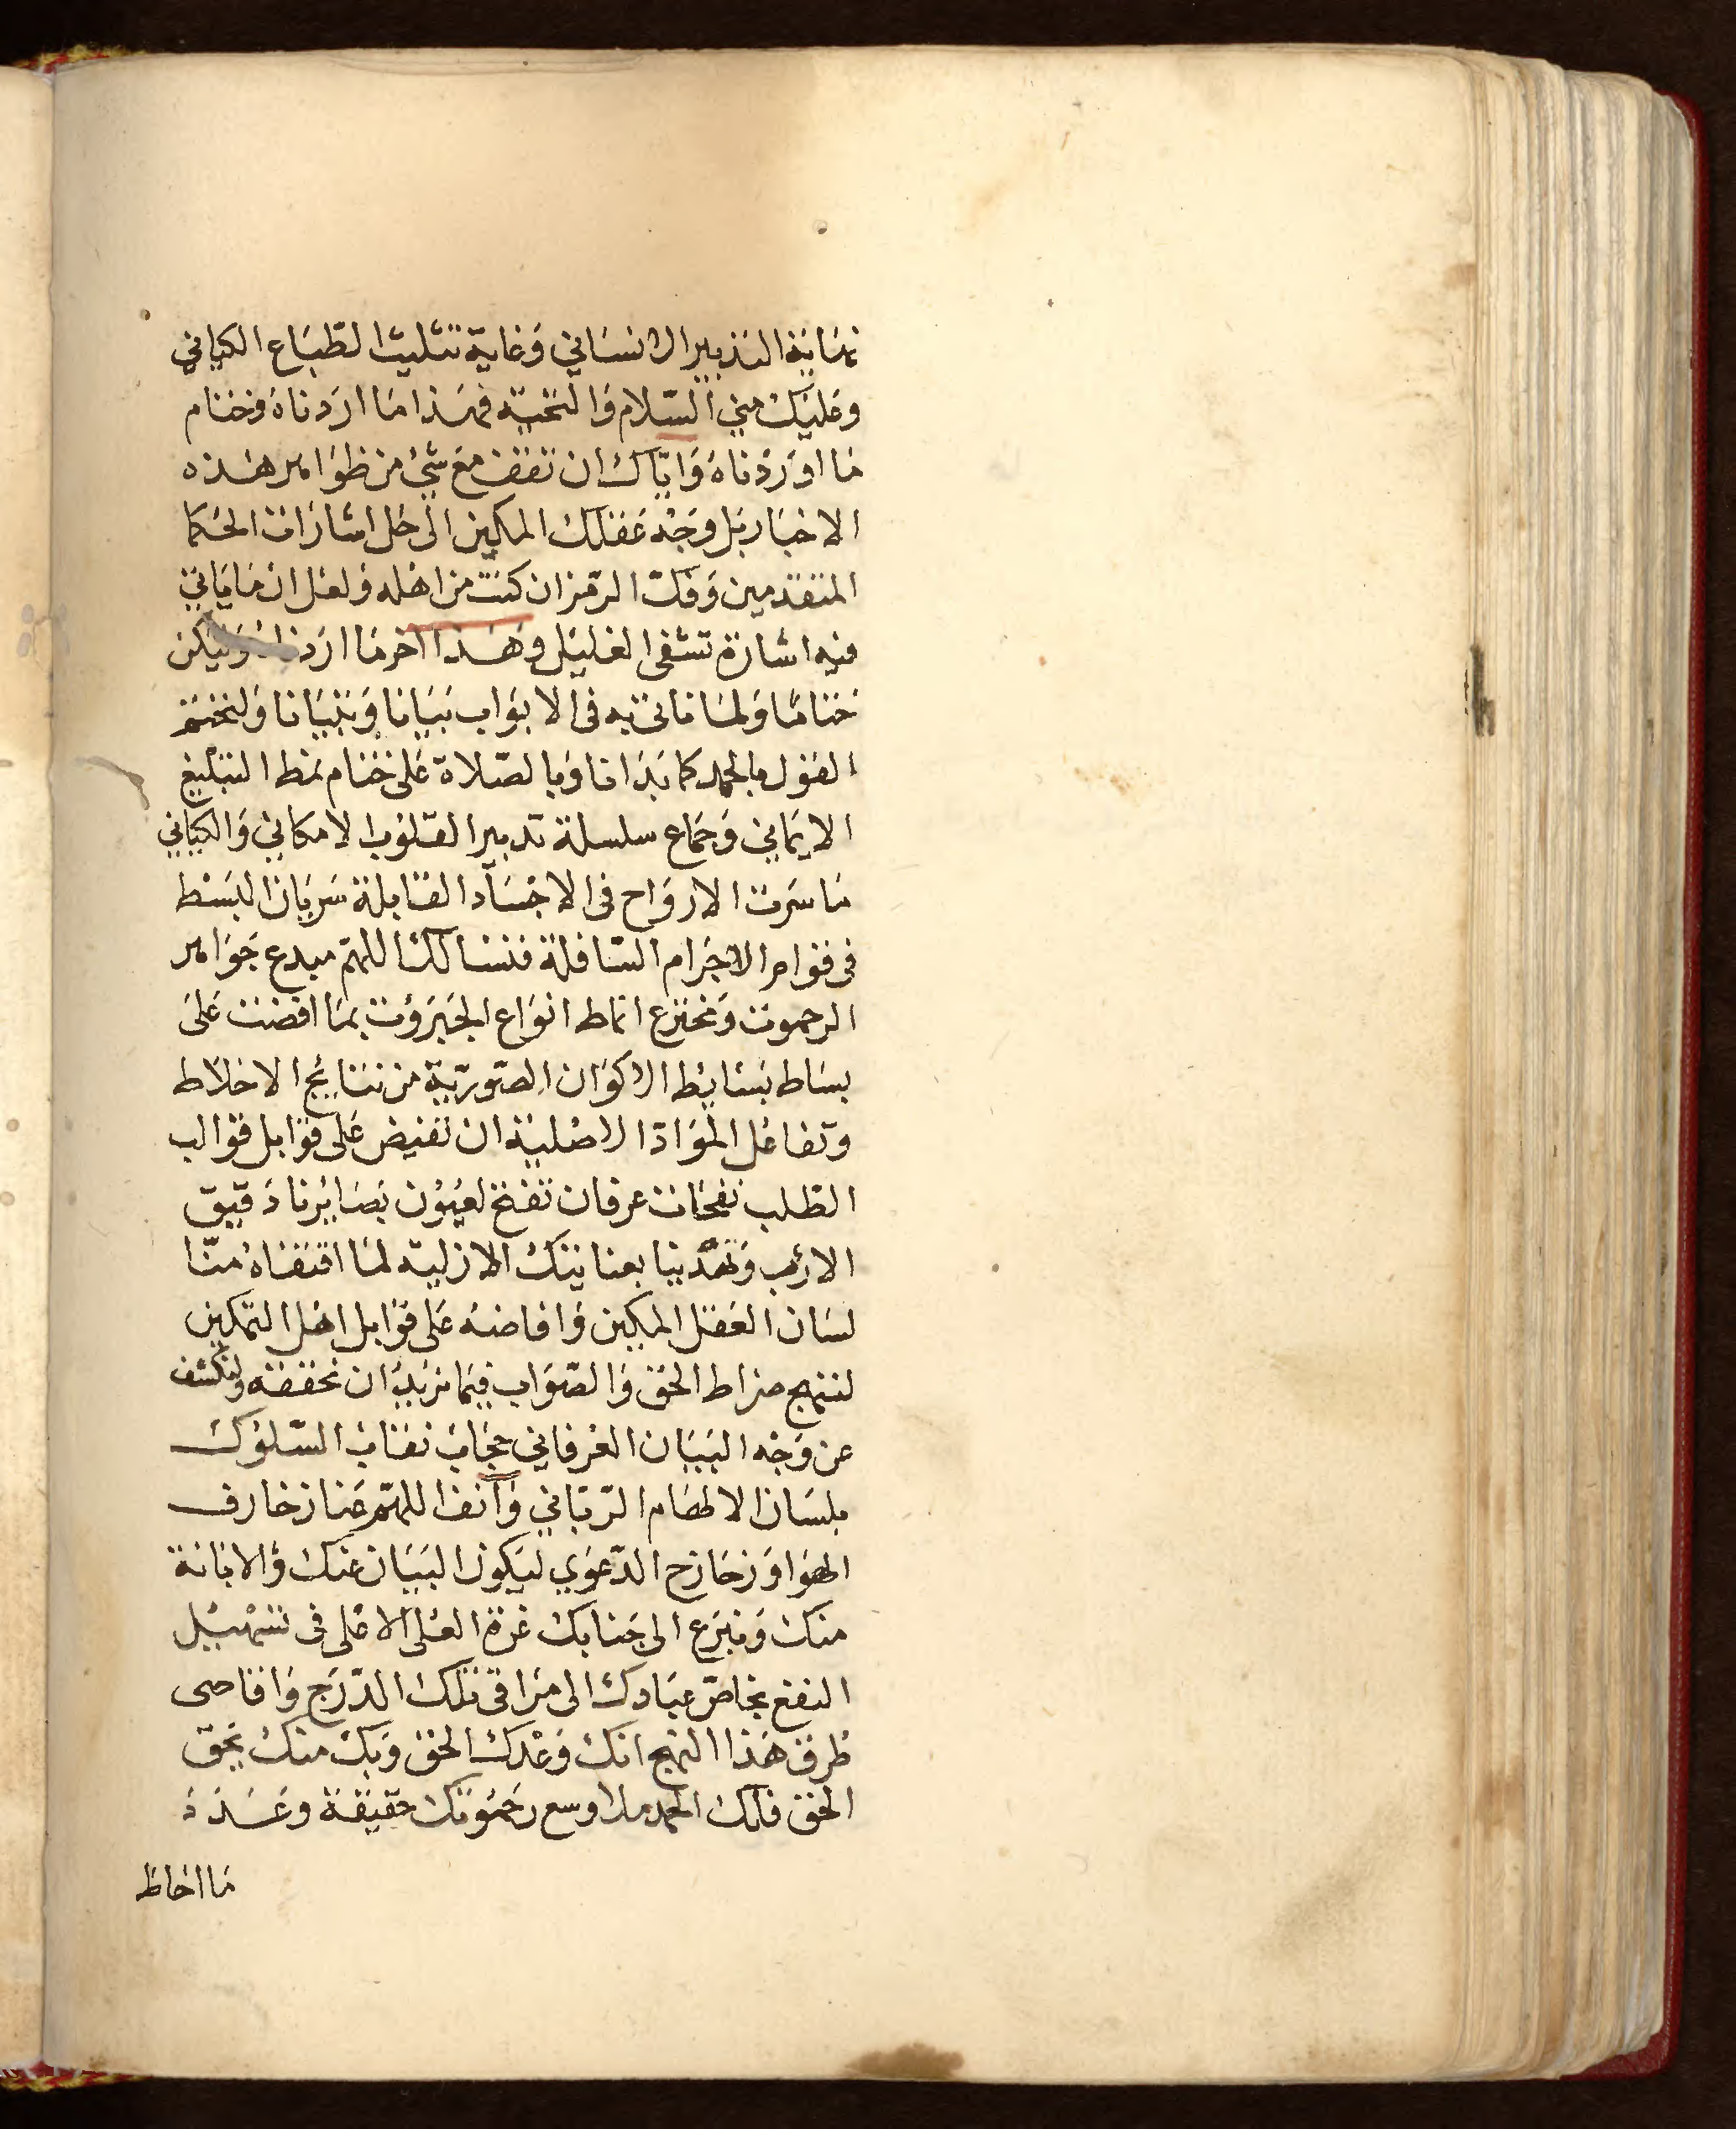 نهاية التدبير الانساني وغاية تثليث الطباع الكياني
وعليك مني السلام والتحية فهذا ما اردناه وختام
ما اوردناه واياك ان تقف مع شئ من ظوامر هذه
الاخبار بل وجه عقلك المكين الى حل اشارات الحكما
المتقدمين وفك الرمز ان كنت من اهله ولعل ان ما ياتي
فيه اشارة تشفى الغليل وهذا اخر ما اردناه وليكن
ختاما ولما ناتى به فى الابواب بيانا وتبيانا ولنختم
القول بالحمد كما بدانا وبالصلاة على ختام نمط التبليغ
الايماني وجماع سلسلة تدبير القلوب الامكاني والكياني
ما سرت الارواح فى الاجساد القابلة سريان البسط
فى قوام الاجرام السافلة فنسالك اللهم مبدع جوامر
الرحموت ومخترع انماط انواع الجبروت بما افضت على
بساط بسايط الاكوان الصورية من نتايج الاخلاط
وتفاعل المواد الاصلية ان تفيض على قوابل قوالب
الطلب نفحات عرفان تفتح لعيون بصايرنا دقيق
الارب وتهدينا بعنايتك الازلية لما اقتفاه منا
لسان العقل المكين وافاضه على قوابل اهل التمكين
لننهج صراط الحق والصواب فيما نريد ان نحققه ولنكشف
عن وجه البيان العرفاني حجاب نقاب السلوك
بلسان الالهام الرباني وانف اللهم عنا زخارف
الهوا وزحازح الدعوي ليكون البيان عنك والابانة
منك ونبرع الى جنابك غرة العلى الاعلى فى تسهيل
النفع بخاص عبادك الى مراقى تلك الدرج واقاصى
طرق هذا النهج انك وعدك الحق وبك منك بحق
الحق فلك الحمد ملا وسع رحموتك حقيقة وعدد
ما احاط